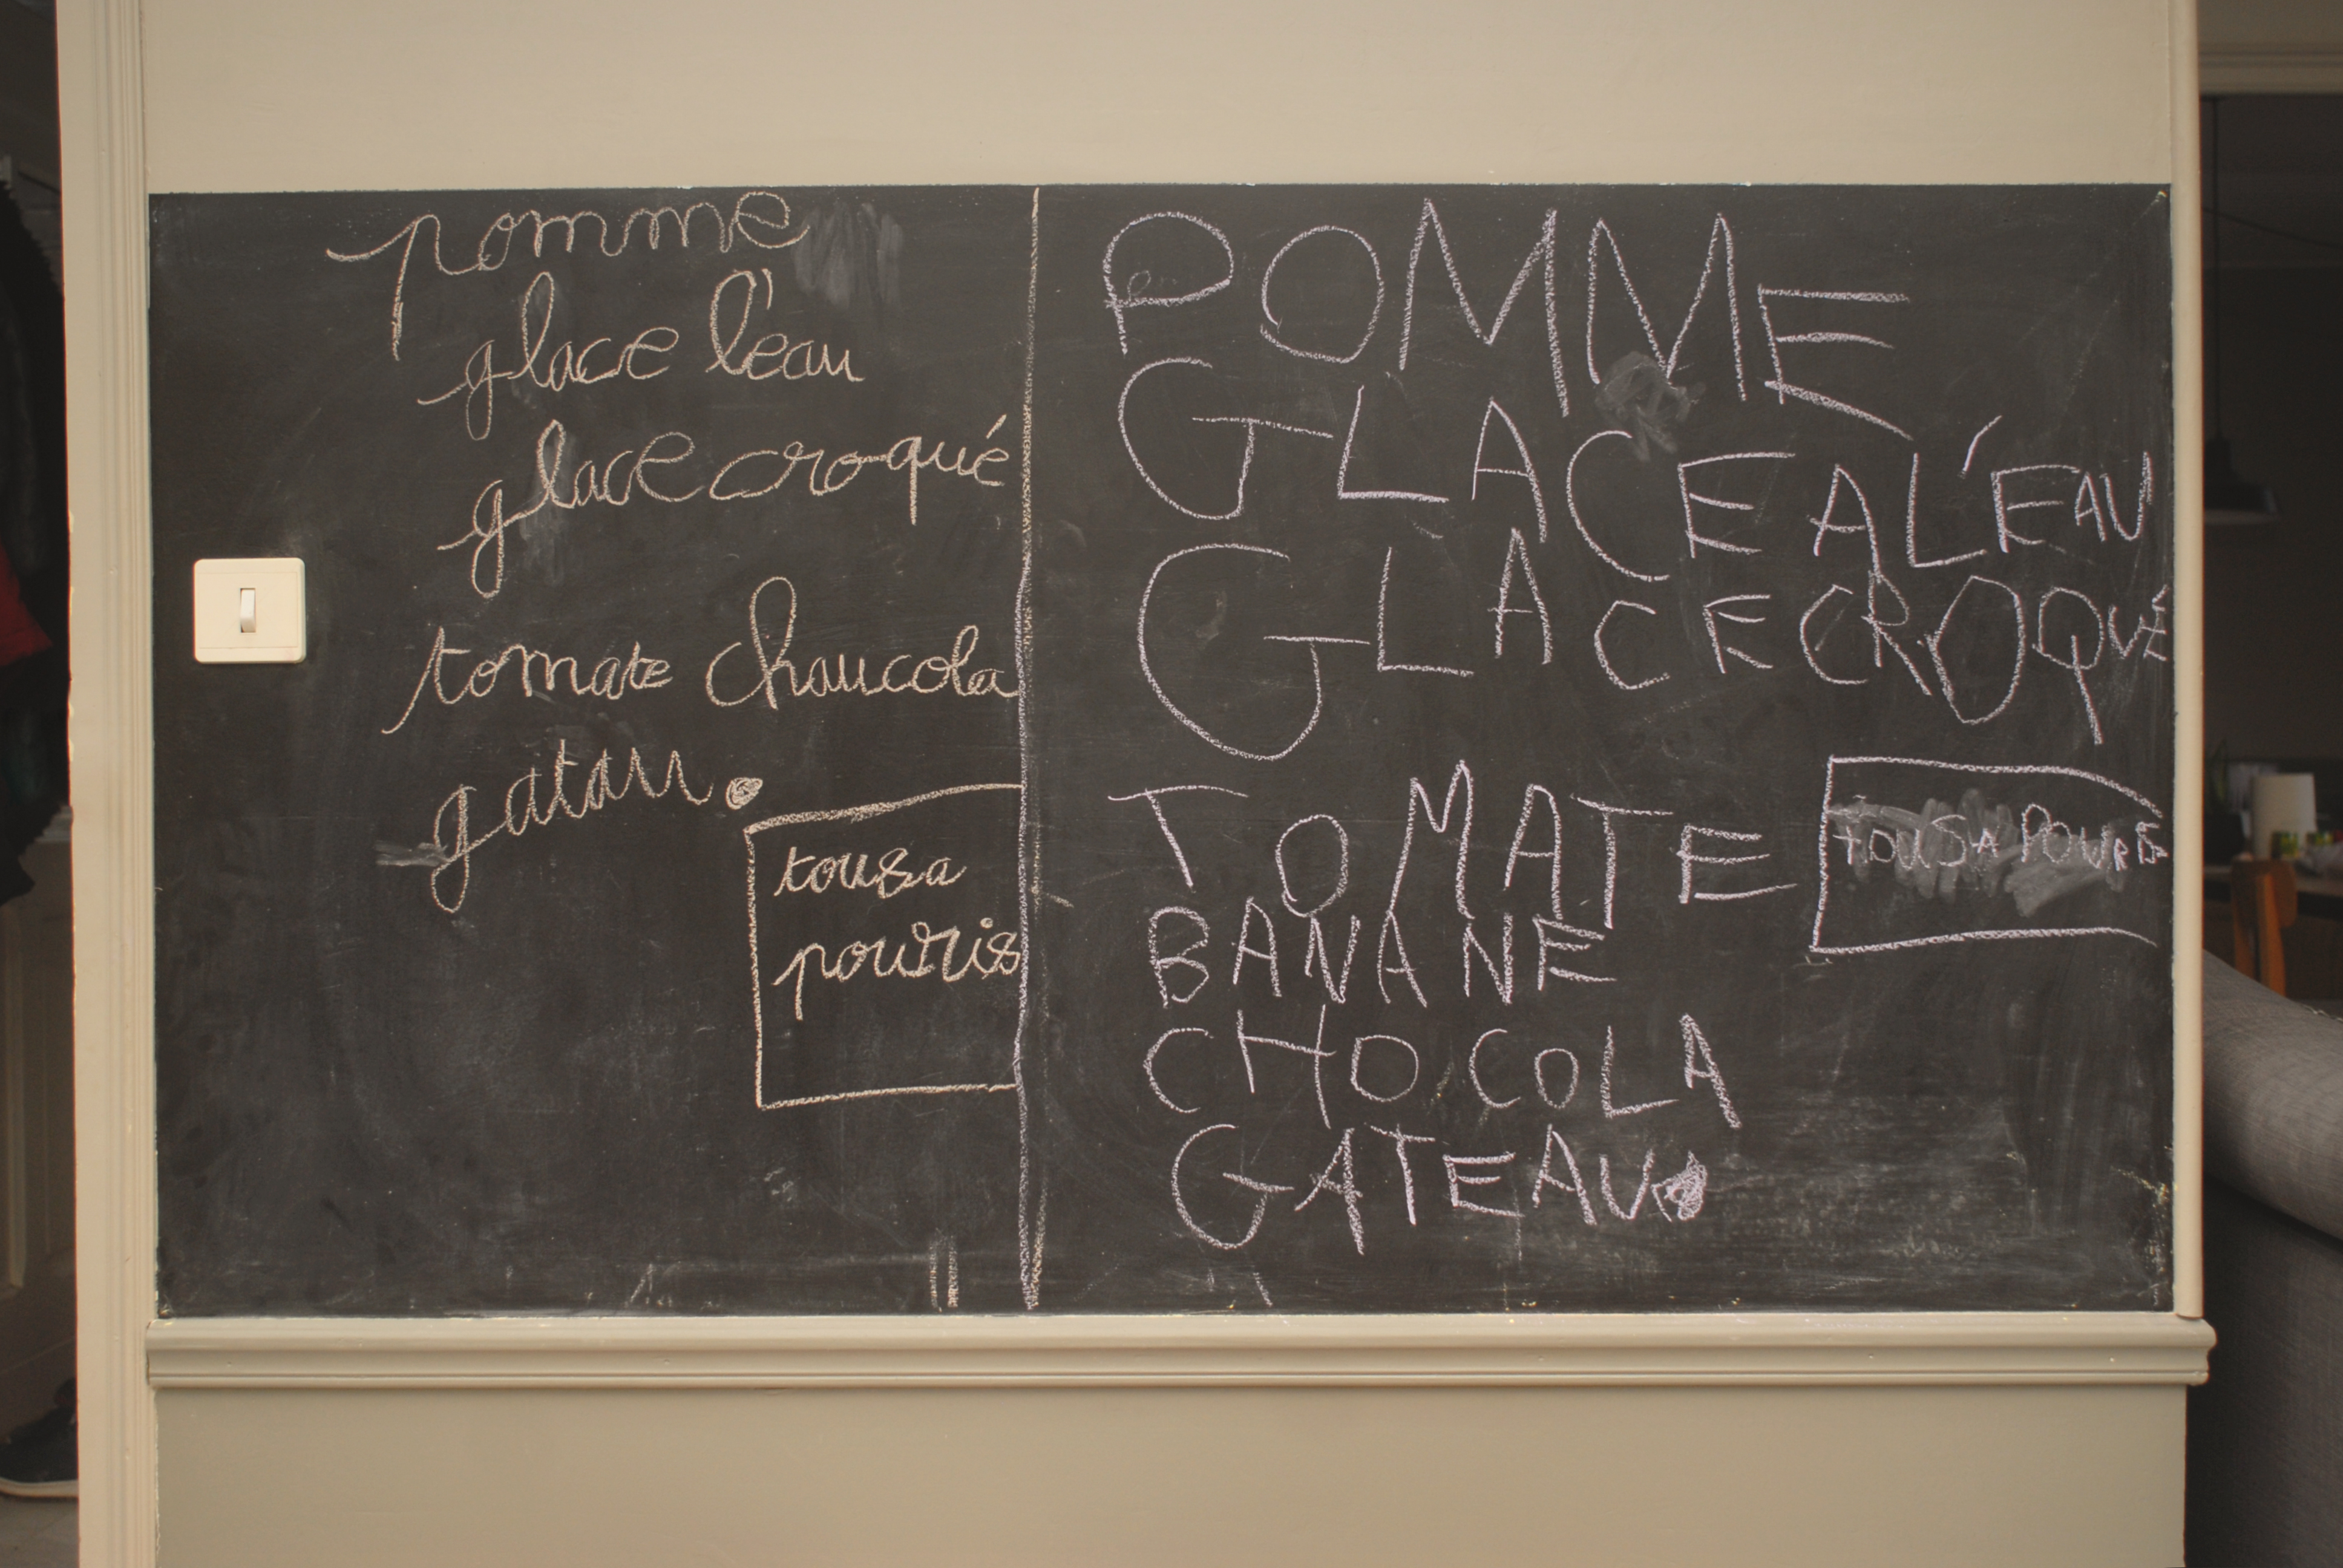 pomme
glace l'eau
glace croqué
tomate chaucola
gatau.
tousa
pouris
POMME
GLACE A L'EAU
GLACE CROQUÉ
TOMATE
TOUSA POURIS
BANANE
CHOCOLA
GATEAU.